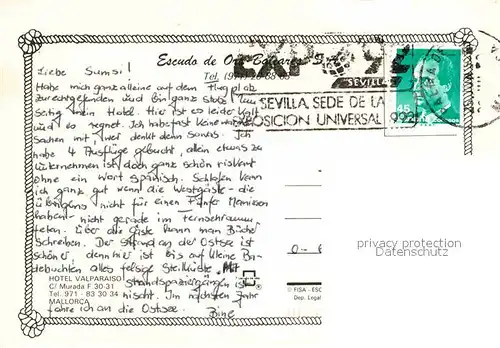 Escudo de Oro Baleares S.A.
Tel. (971)
EXPO 92
SEVILLA
SEVILLA, SEDE DE LA
EXPOSICION UNIVERSAL 1992
45
Liebe Sumsi!
Habe mich ganz alleine auf dem Flugplatz
zurechtgefunden und bin ganz stolz.
mein Hotel. Hier ist es leider kalt
und es regnet. Ich habe fast keine warmen
Sachen mit, wer denkt denn sowas. Ich
habe 4 Ausflüge gebucht, allein etwas zu
unternehmen ist doch ganz schön riskant
ohne ein Wort spanisch. Schlafen kann
ich ganz gut wenn die Westgäste - die
übrigens nicht für einen Fünfer Manieren
haben - nicht gerade im Fernsehraum
. Über die Gäste kann man Bücher
schreiben. Der Strand an der Ostsee ist
schöner, denn hier ist bis auf kleine Ba-
debuchten alles felsige Steilküste. Mit
strandspaziergängen ist
nischt. Im nächsten Jahr
fahre ich an die Ostsee.
Bine
HOTEL VALPARAISO
C/ Murada F 30-31
Tel. 971 - 83 30 34
MALLORCA
© FISA - ESC
Dep. Legal
privacy protection
Datenschutz